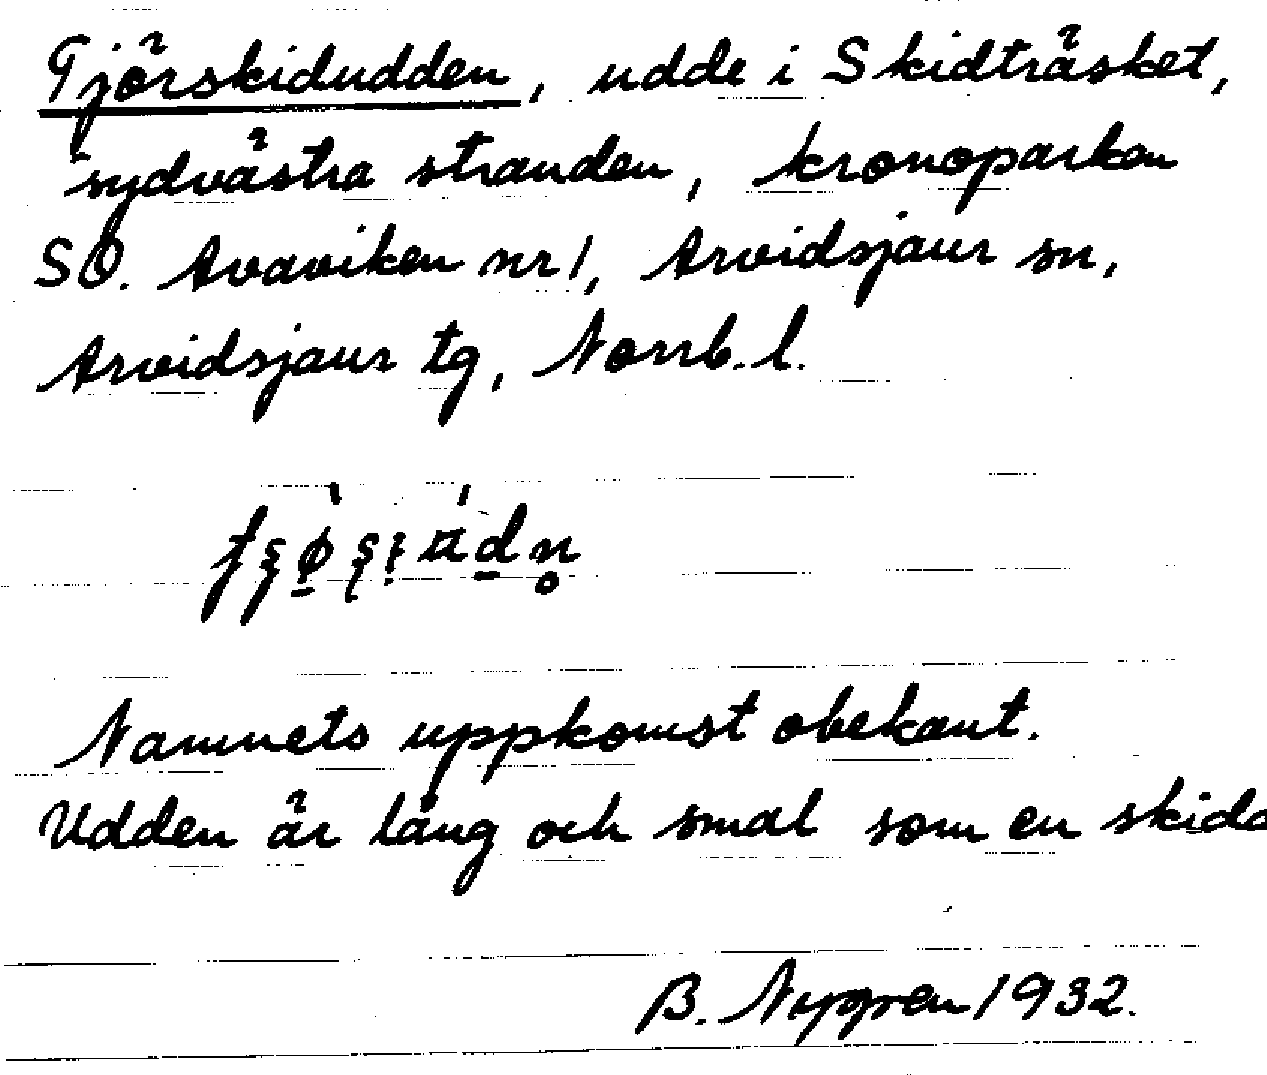 Tjörskidudden, udde i Skidträsket,
sydvästra stranden, kronoparken
SO. Avaviken nr 1, Arvidsjaur sn,
Arvidsjaur tg, Norrb. l.
Namnets uppkomst obekant.
Udden är lång och smal som en skida
B. Nygren 1932.